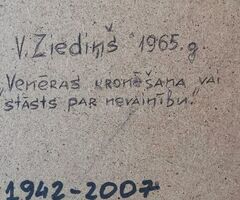 V. Ziediņš 1965. g.
„Venēras kronēšana vai
stāsts par nevainību."
1942-2007